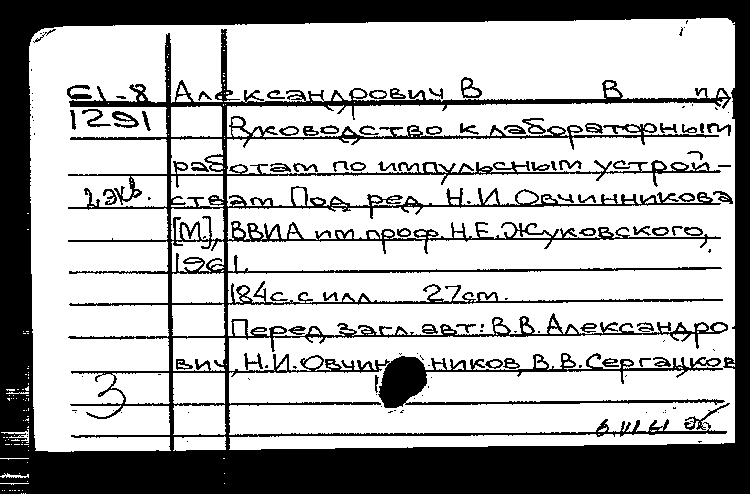 61-8 Александрович, В В и др
1291 Руководство к лабораторным
работам по импульсным устрой-
2 экв. ствам Под ред. Н.И. Овчинникова
[М.], ВВИА им. проф. Н.Е. Жуковского,
1961.
184с. с илл. 27см.
Перед загл. авт: В.В. Александро-
вич, Н.И. Овчинников, В.В. Сергацков
3
6.III 61